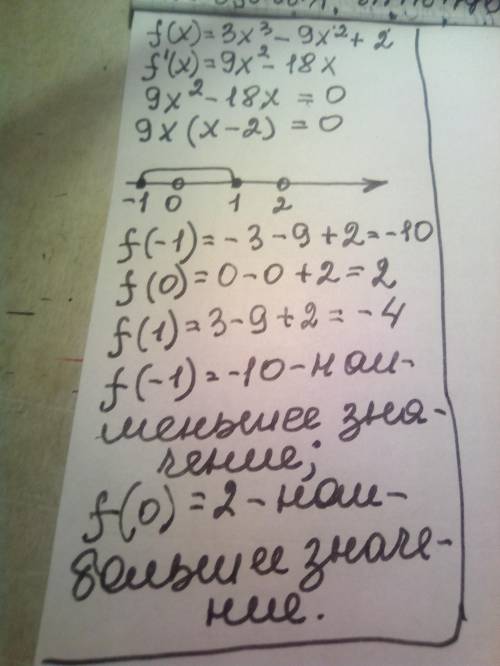 f(x)=3x³-9x²+2
f'(x)=9x²-18x
9x²-18x=0
9x(x-2)=0
-1 0 1 2
f(-1)=-3-9+2=-10
f(0)=0-0+2=2
f(1)=3-9+2=-4
f(-1)=-10-наи-
меньшее зна-
чение;
f(0)=2-наи-
большее значе-
ние.